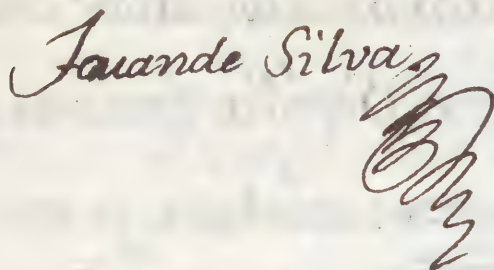 Jauande Silva